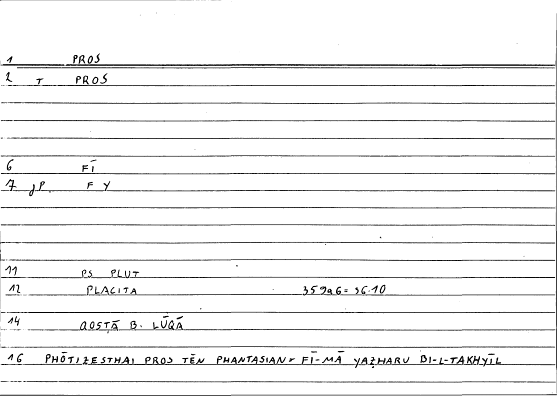 1 PROS
2 T PROS
6 FĪ
7 JP. F Y
11 PS. PLUT
12 PLACITA 359a6= 36.10
14 QOSṬĀ B. LŪQĀ
16 PHŌTIZESTHAI PROS TĒN PHANTASIAN FĪ-MĀ YAẒHARU BI-L-TAKHYĪL